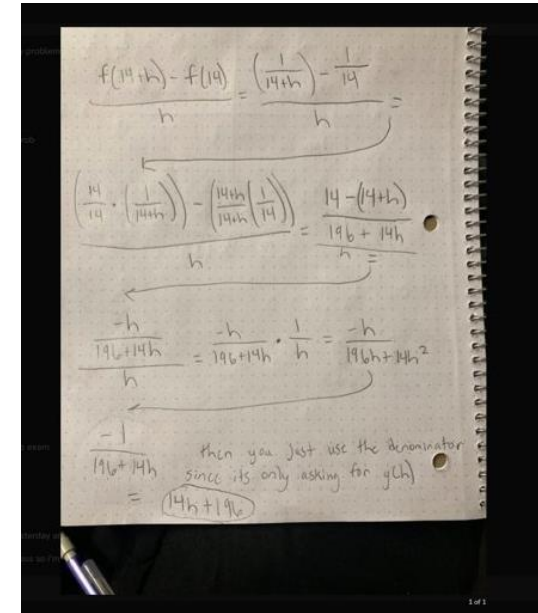 problem
\frac{f(14+h) - f(14)}{h} = \frac{\left(\frac{1}{14+h}\right) - \frac{1}{14}}{h} =
\frac{\left(\frac{14}{14} \cdot \left(\frac{1}{14+h}\right)\right) - \left(\frac{14+h}{14+h}\left(\frac{1}{14}\right)\right)}{h} = \frac{\frac{14-(14+h)}{196+14h}}{h} =
\frac{\frac{-h}{196+14h}}{h} = \frac{-h}{196+14h} \cdot \frac{1}{h} = \frac{-h}{196h+14h^2}
\frac{-1}{196+14h}
then you just use the denominator
since its only asking for y(h)
= 14h+196
exam
1 of 1